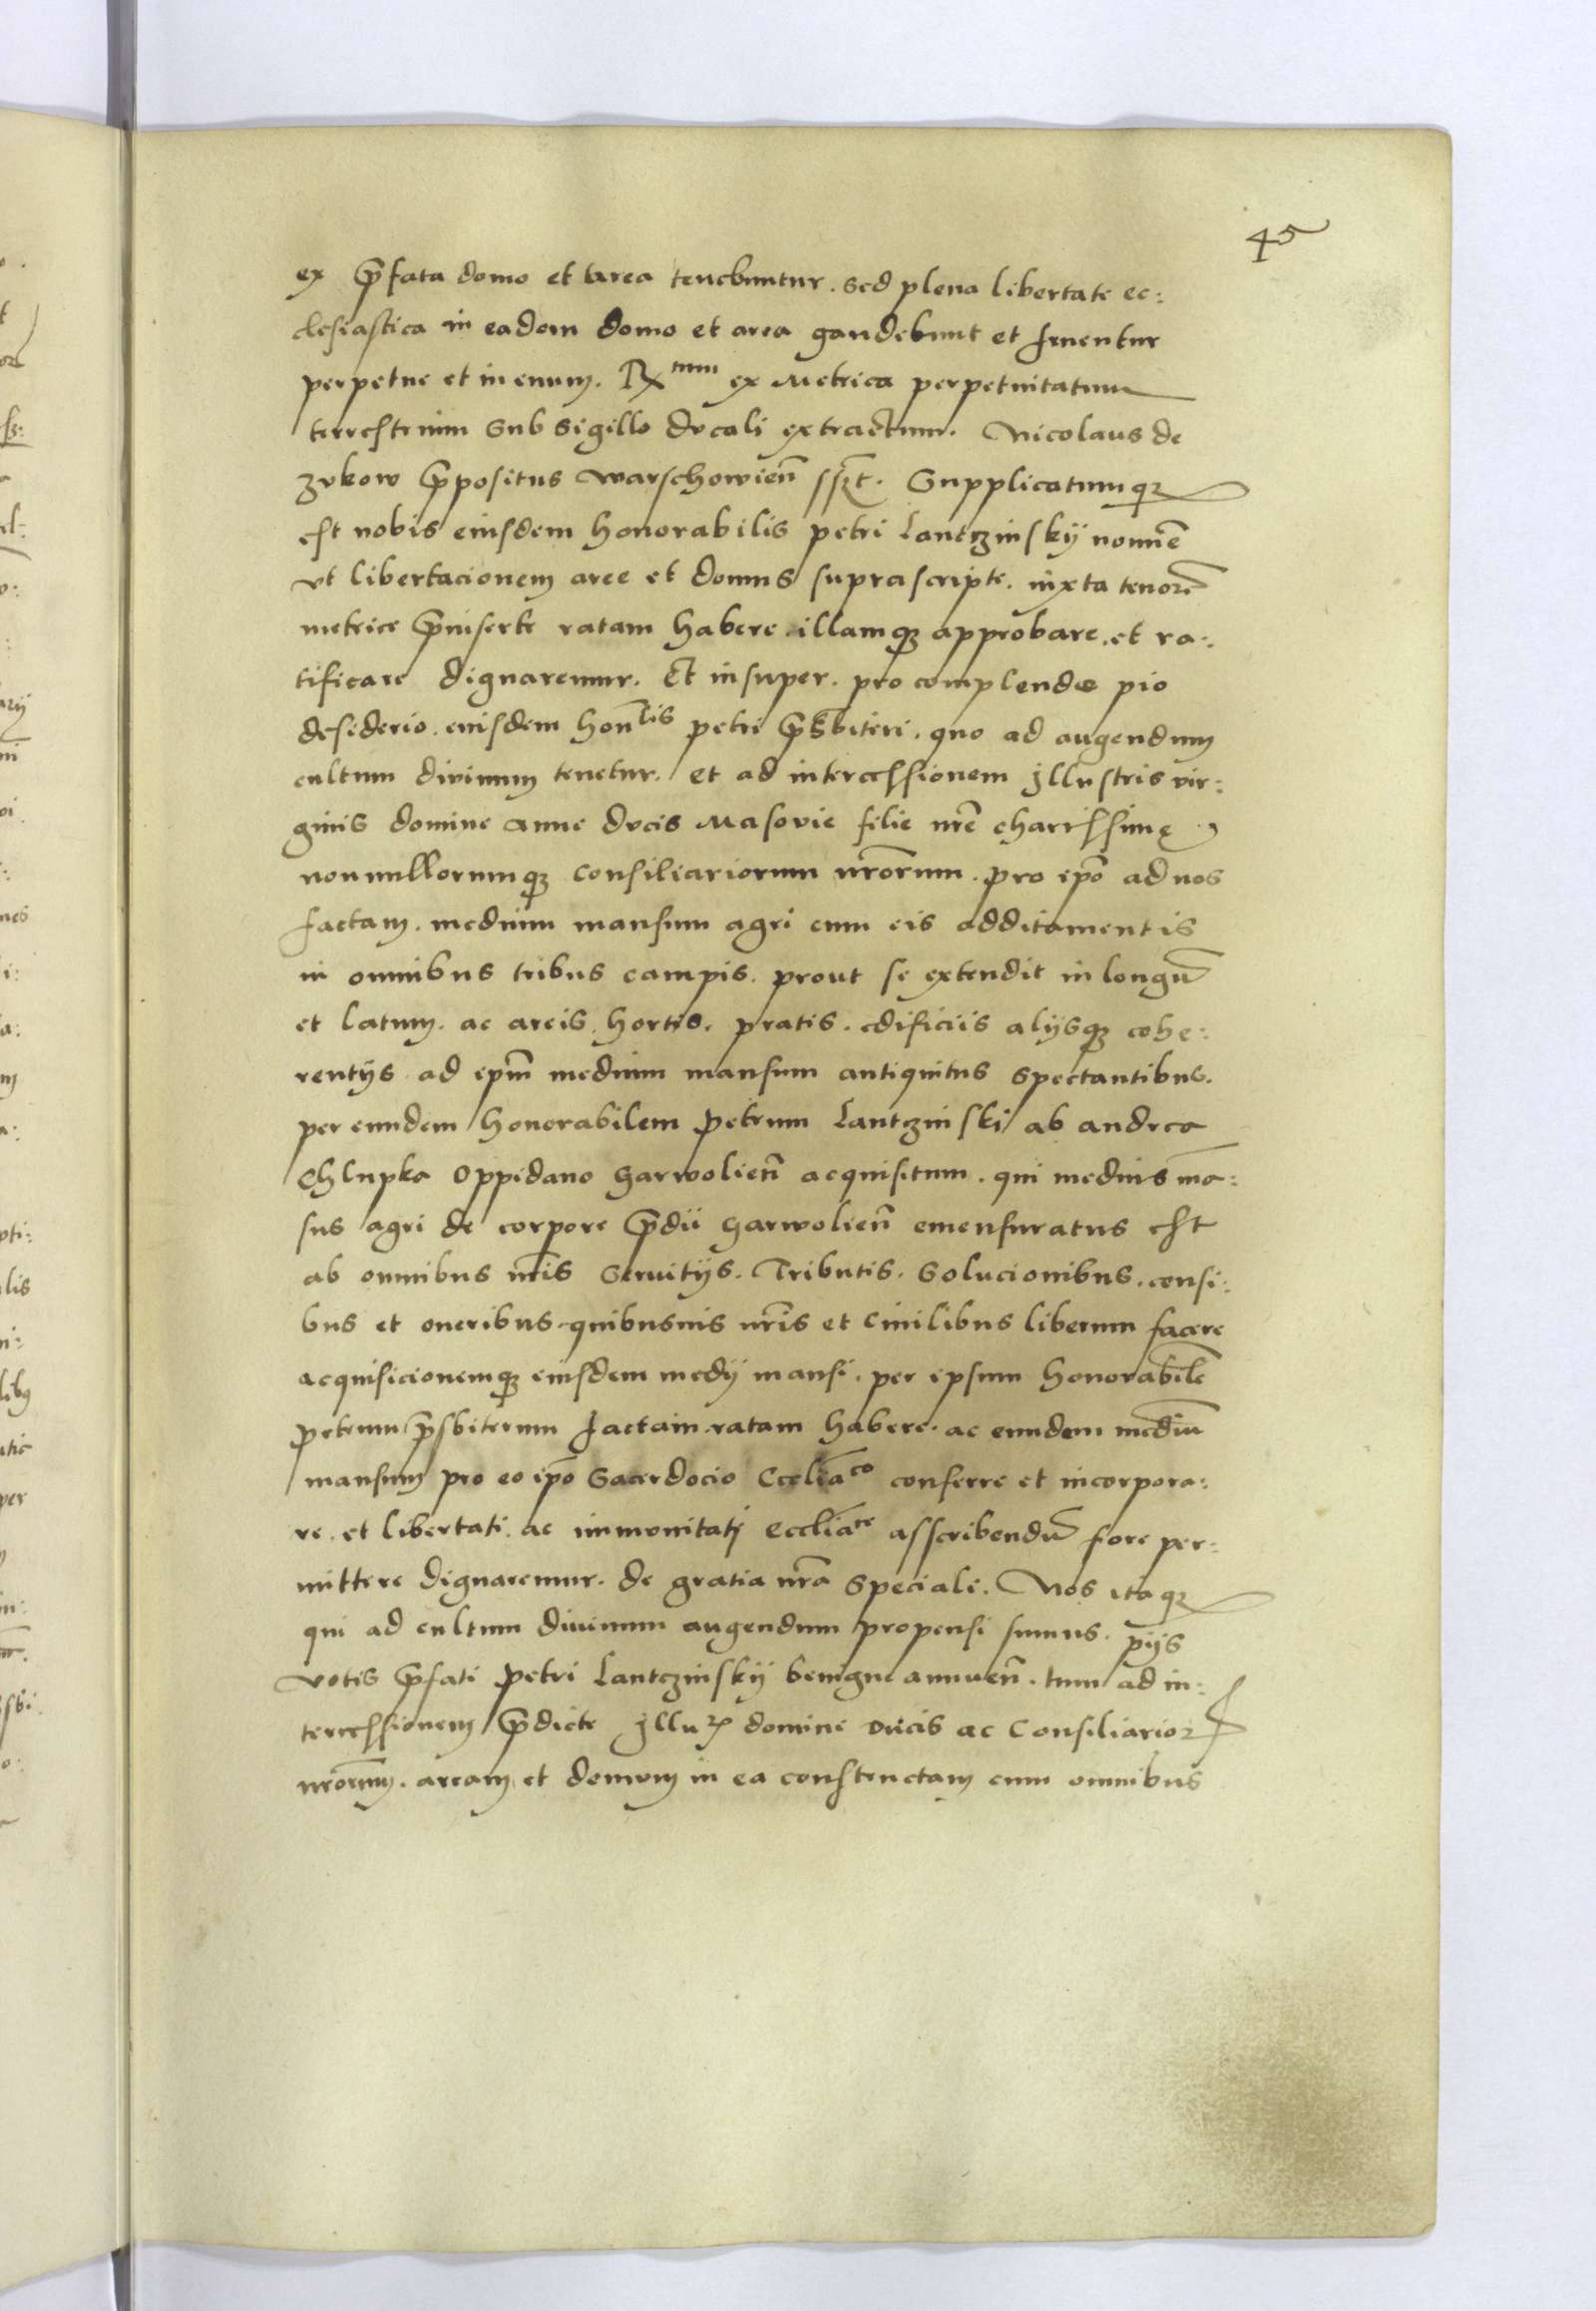 45
ex p̄fata domo et area tenebuntur. Sed plena libertate ec:
clesiastica in eadem domo et area gaudebunt et fruentur
perpetue et in euum. Rx^tum ex Metrica perpetuitatum
terrestrium sub sigillo ducali extractum. Nicolaus de
zukow p̄positus warschowień sszt. Supplicatumqz
est nobis eiusdem honorabilis petri Lantczinskij nomīe
vt libertacionem aree et domus suprascripte. iuxta tenorē
metrice p̄inserte ratam habere. illamqz approbare. et ra:
tificare dignaremur. Et insuper. pro complendo pio
desiderio. eiusdem hon^lis petri p̄sbiteri. quo ad augendum
cultum diuinum tenetur. et ad intercessionem jllustris vir:
ginis domine anne ducis Masouie filie nrē charissimę
nonnullorumqz consiliariorum nrōrum. pro ipō ad nos
factam. medium mansum agri cum eis additamentis
in omnibus tribus campis. prout se extendit in longū
et latum. ac areis. hortis. pratis. edificiis alijsqz cohe:
rentijs ad ipm̄ medium mansum antiquitus spectantibus.
per eundem honorabilem petrum Lantczinski ab andrea
Chlupka oppidano garwolień acquisitum. qui medius mā:
sus agri de corpore p̄dii garwolień emensuratus est
ab omnibus nrīs seruitijs. Tributis. Solucionibus. censi:
bus et oneribus quibusuis nrīs et ciuilibus liberum facere
acquisicionemqz eiusdem medij mansi. per ipsum honorabilē
petrum p̄sbiterum factam ratam habere. ac eundem mediū
mansum pro eo ipō Sacerdocio Eccliā^co conferre et incorpora:
re. et libertati. ac immunitati eccliā^ce asscribendū fore per:
mittere dignaremur. de gratia nrā speciali. Nos itaqz
qui ad cultum diuinum augendum propensi sumus. pijs
votis p̄fati petri Lantczinskij benigne annueñ. tum ad in:
tercessionem p̄dicte jllu^r domine ducis ac Consiliarioꝝ
nrōrum. aream et domum in ea constructam cum omnibus